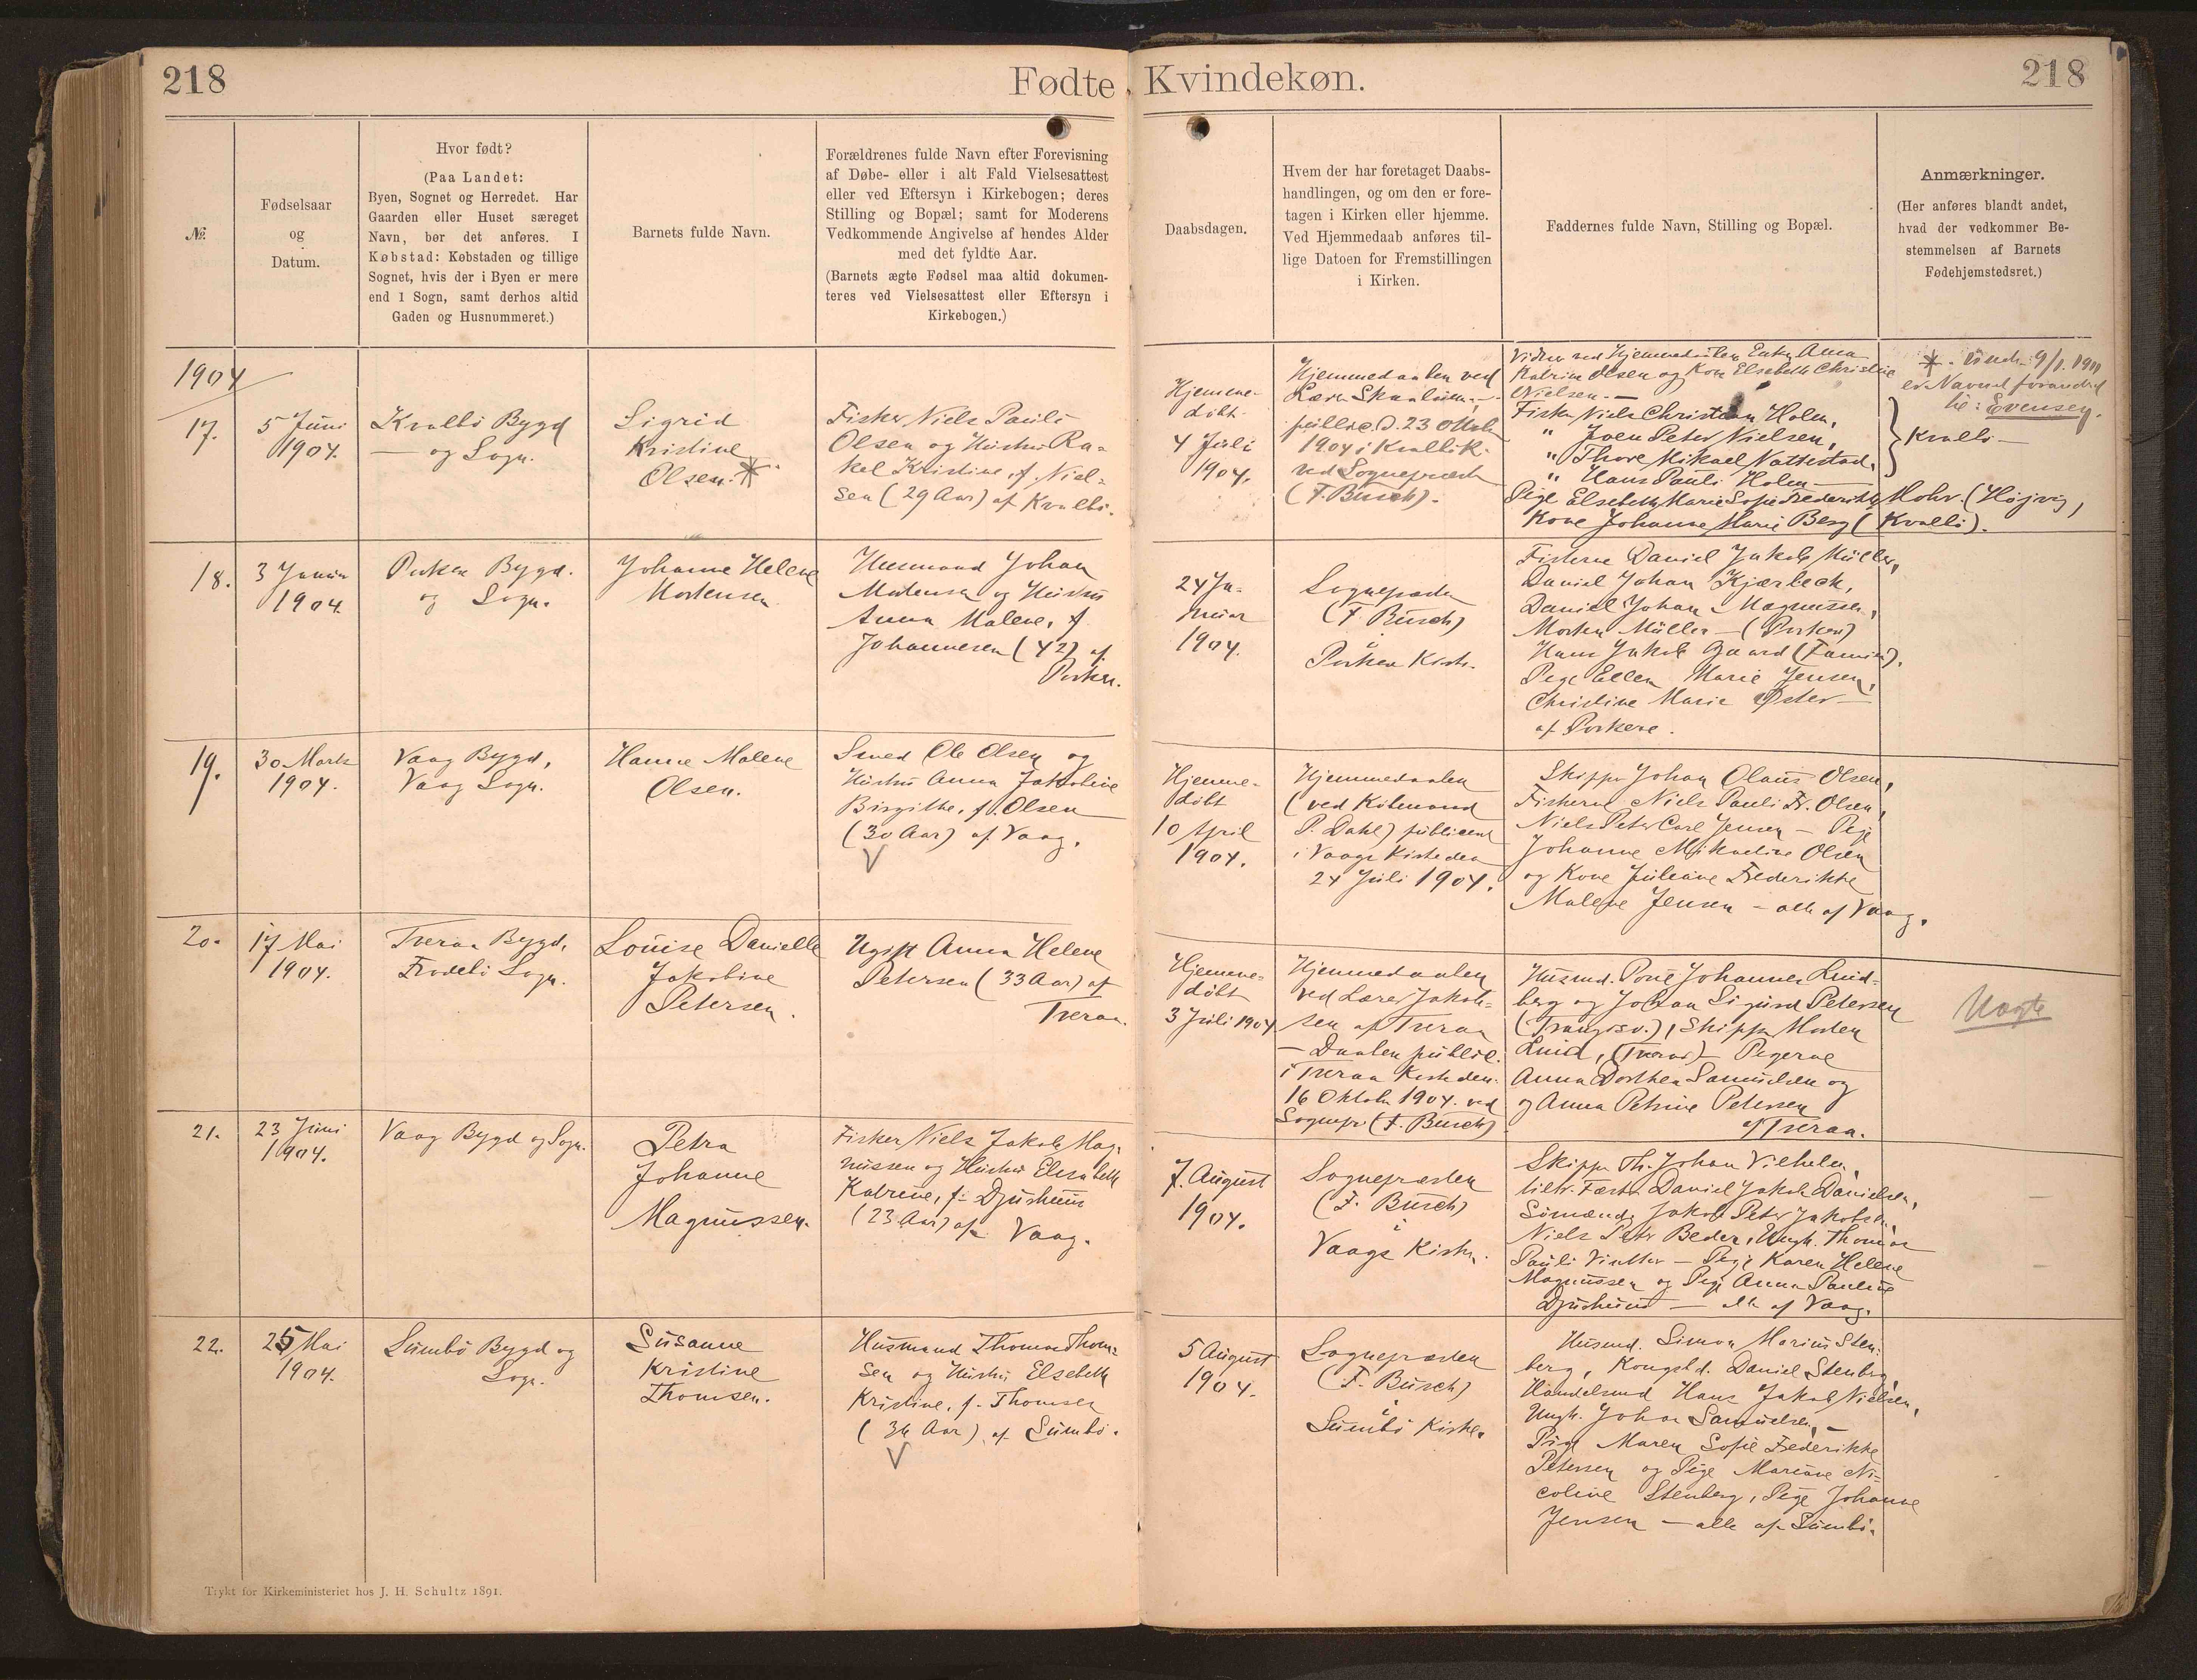 218
Fødte, Kvindekøn.
218
№
Fødselsaar
og
Datum.
Hvor født?
(Paa Landet:
Byen, Sognet og Herredet. Har
Gaarden eller Huset særeget
Navn, bør det anføres. I
Købstad: Købstaden og tillige
Sognet, hvis der i Byen er mere
end 1 Sogn, samt derhos altid
Gaden og Husnummeret.)
Barnets fulde Navn.
Forældrenes fulde Navn efter Forevisning
af Døbe- eller i alt Fald Vielsesattest
eller ved Eftersyn i Kirkebogen; deres
Stilling og Bopæl; samt for Moderens
Vedkommende Angivelse af hendes Alder
med det fyldte Aar.
(Barnets ægte Fødsel maa altid dokumen-
teres ved Vielsesattest eller Eftersyn i
Kirkebogen.)
Daabsdagen.
Hvem der har foretaget Daabs-
handlingen, og om den er fore-
tagen i Kirken eller hjemme.
Ved Hjemmedaab anføres til-
lige Datoen for Fremstillingen
i Kirken.
Faddernes fulde Navn, Stilling og Bopæl.
Anmærkninger.
(Her anføres blandt andet,
hvad der vedkommer Be-
stemmelsen af Barnets
Fødehjemstedsret.)
1904
17.
5 Juni
1904.
Kvalbö Bygd
— og Sogn.
Sigrid
Kristine
Olsen.*
Fisker Niels Pauli
Olsen og Hustru Ra-
kel Kristine, f. Niel-
sen (29 Aar) af Kvalbö.
Hjemme-
döbt
4 Juli
1904.
Hjemmedaaben ved
Lærer Skaalum,
public. d. 23 Oktob
1904 i Kvalbö K.
ved Sognepræst
(F. Busch).
Vidner ved Hjemmedaaben Enke Anna
Katrine Olsen og Kone Elsebeth Christine
Nielsen. —
Fisker Niels Christian Holm,
" Joen Peter Nielsen,
" Thore Mikael Nattestad,
" Hans Pauli Holm —
Pige Elsebeth Marie Sofie Frederikke Mohr. (Höjvig,
Kone Johanne Marie Berg (Kvalbö).
* 9/1. 1911
er Navnet forandret
til: Evensen.
Kvalbö —
18.
3 Januar
1904
Porkere Bygd.
og Sogn.
Johanne Helene
Mortensen
Husmand Johan
Mortensen og Hustru
Anna Malene, f.
Johannesen (42) af
Porkere.
24 Ja-
nuar
1904.
Sognepræsten
(F. Busch)
i
Porkere Kirke.
Fiskerne Daniel Jakob Müller,
Daniel Johan Kjærbech,
Daniel Johan Magnussen,
Morten Müller — (Porkere)
Hans Jakob Gaard (Famien).
Pige Ellen Marie Jensen,
Christine Marie Öster —
af Porkere.
19.
30 Marts
1904.
Vaag Bygd,
Vaag Sogn.
Hanne Malene
Olsen.
Smed Ole Olsen og
Hustru Anna Jakobine
Birgithe, f. Olsen
(30 Aar) af Vaag.
Hjemme-
döbt
10 April
1904.
Hjemmedaaben
(ved Købmand
P. Dahl) publiceret
i Vaags Kirke den
24 Juli 1904.
Skipper Johan Olaus Olsen,
Fiskerne Niels Pauli Fr. Olsen,
Niels Peter Carl Jensen — Pige
Johanne Mikaeline Olsen
og Kone Juliane Frederikke
Malene Jensen — alle af Vaag.
20.
17 Mai
1904.
Tveraa Bygd,
Frodebö Sogn.
Louise Danielle
Jakobine
Petersen.
Ugift Anna Helene
Petersen (33 Aar) af
Tveraa.
Hjemme-
döbt
3 Juli 1904
Hjemmedaaben
ved Lærer Jakob-
sen af Tveraa
— Daaben public.
i Tveraa Kirke den
16 Oktober 1904. ved
Sognepr. (F. Busch)
Husmd. Poul Johannes Lind-
berg og Johan Sigurd Petersen
(Trangisv.), Skipper Morten
Luid, (Tveraa) — Pigerne
Anna Dorthea Samuelsen og
og Anna Petrine Petersen
af Tveraa.
Uægte
21.
23 Juni
1904.
Vaag Bygd og Sogn.
Petra
Johanne
Magnussen.
Fisker Niels Jakob Mag-
nussen og Hustru Elisabeth
Katrine, f. Djurhuus
(23 Aar) af Vaag.
7. August
1904.
Sognepræsten
(F. Busch)
i
Vaags Kirke.
Skipper Th. Johan Vilhelm,
Daniel Jakob Danielsen,
Sömænd Jakob Peter Jakobsen,
Niels Peter Beder, Ungk. Thomas
Pauli Vinther — Pige Karen Helene
Magnussen og Pige Anna Pauline
Djurhuus — alle af Vaag.
22.
25 Mai
1904.
Sumbö Bygd og
Sogn.
Susanne
Kristine
Thomsen.
Husmand Thomas Thom-
sen og Hustru Elsebeth
Kristine, f. Thomsen
(36 Aar), af Sumbö.
5 August
1904.
Sognepræsten
(F. Busch)
i
Sumbö Kirke.
Husmd. Simon Marius Sten-
berg, Kongsbd. Daniel Stenberg,
Handelsmd Hans Jakob Nielsen,
Ungk. Johan Samuelsen, —
Pige Maren Sofie Frederikke
Petersen og Pige Mariane Ni-
coline Stenberg, Pige Johanne
Jensen — alle af Sumbö.
Trykt for Kirkeministeriet hos J. H. Schultz 1891.